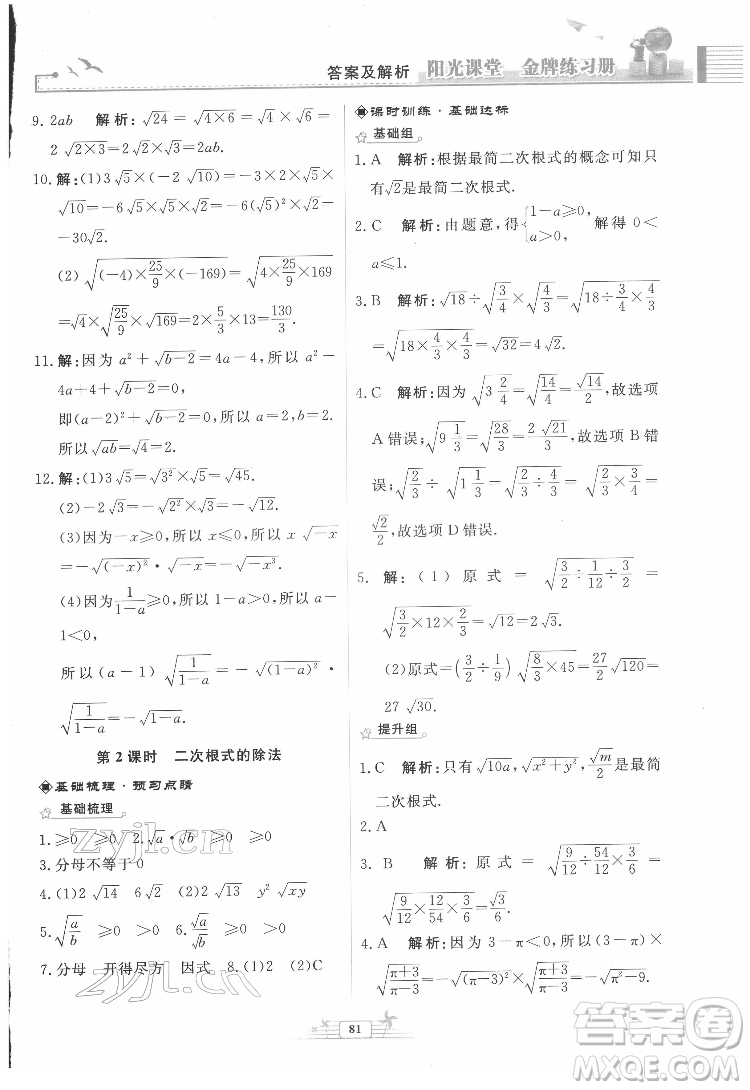 答案及解析 阳光课堂 金牌练习册
9. 2ab 解析：√24＝√(4×6)＝√4×√6＝
2√(2×3)＝2√2×√3＝2ab.
10. 解：(1)3√5×(－2√10)＝－3×2√5×
√10＝－6√5×√5×√2＝－6(√5)²×√2＝
－30√2.
(2)√((－4)×25/9×(－169))＝√(4×25/9×169)
＝√4×√(25/9)×√169＝2×5/3×13＝130/3.
11. 解：因为a²＋√(b－2)＝4a－4，所以a²－
4a＋4＋√(b－2)＝0，
即(a－2)²＋√(b－2)＝0，所以a＝2，b＝2.
所以√(ab)＝√4＝2.
12. 解：(1)3√5＝√(3²)×√5＝√45.
(2)－2√3＝－√(2²×3)＝－√12.
(3)因为－x≥0，所以x≤0，所以x√(－x)＝
－√((－x)²)×√(－x)＝－√(－x³).
(4)因为1/(1－a)≥0，所以1－a＞0，所以a－
1＜0，
所以(a－1)√(1/(1－a))＝－√((1－a)²)·
√(1/(1－a))＝－√(1－a).
第2课时 二次根式的除法
基础梳理·预习点睛
基础梳理
1. ≥0 ≥0 2. √a·√b ≥0 ≥0
3. 分母不等于0
4. (1)2√14 6√2 (2)2√13 y²√(xy)
5. √(a/b) ≥0 ＞0 6. √a/√b ≥0 ＞0
7. 分母 开得尽方 因式 8. (1)2 (2)C
课时训练·基础达标
基础组
1. A 解析：根据最简二次根式的概念可知只
有√2是最简二次根式.
2. C 解析：由题意，得{1－a≥0，a＞0， 解得0＜
a≤1.
3. B 解析：√18÷√(3/4)×√(4/3)＝√(18÷3/4×4/3)
＝√(18×4/3×4/3)＝√32＝4√2.
4. C 解析：因为√(3 2/4)＝√(14/4)＝√14/2，故选项
A错误；√(9 1/3)＝√(28/3)＝2√21/3，故选项B错
误；√(2/3)÷√(1 1/3)＝√(2/3÷4/3)＝√(2/3×3/4)＝
√2/2，故选项D错误.
5. 解：(1)原式＝√(3/2÷1/12÷3/2)＝
√(3/2×12×2/3)＝√12＝2√3.
(2)原式＝(3/2÷1/9)√(8/3×45)＝27/2√120＝
27√30.
提升组
1. C 解析：只有√(10a)，√(x²＋y²)，√m/2是最简
二次根式.
2. A
3. B 解析：原式＝√(9/12÷54/12×3/6)＝
√(9/12×12/54×3/6)＝√3/6.
4. A 解析：因为3－π＜0，所以(3－π)×
√((π＋3)/(π－3))＝－√((π－3)²)×√((π＋3)/(π－3))＝－√(π²－9).
81
zyjl.cn
zyjl.cn
答案卷
MXQE.COM